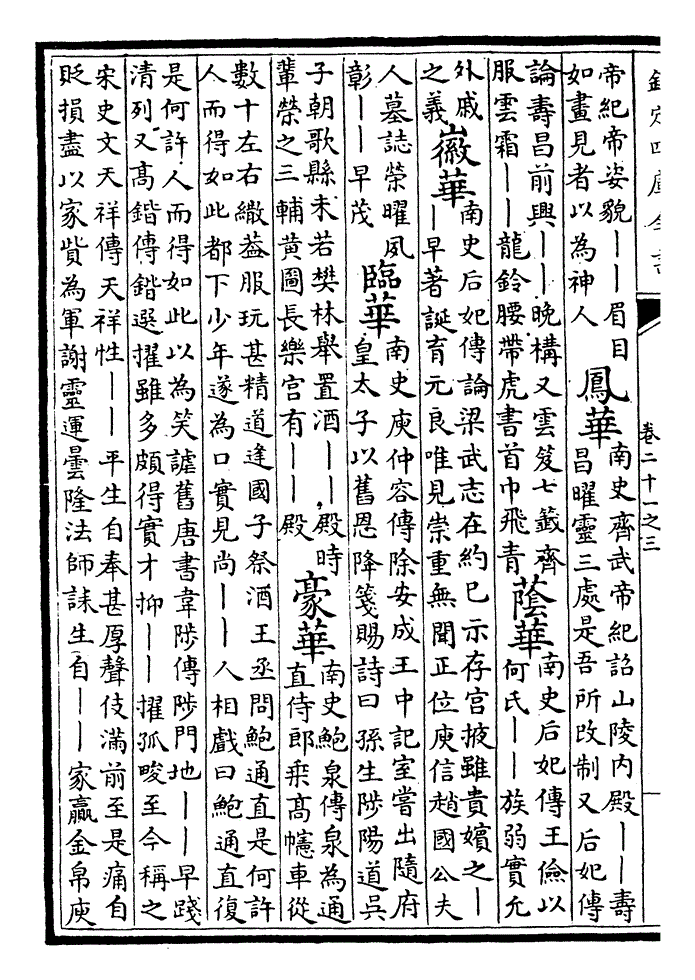 欽定四庫全書
卷二十一之三
帝紀帝姿貌――眉目
如畫見者以為神人
鳳華
南史齊武帝紀詔山陵内殿――壽
昌曜靈三處是吾所改制又后妃傳
論壽昌前興――晚構又雲笈七籤齊
服雲霜――龍鈴腰帶虎書首巾飛青
蔭華
南史后妃傳王儉以
何氏――族弱實允
外戚
之義
徽華
南史后妃傳論梁武志在約已示存宫掖雖貴嬪之―
―早著誕育元良唯見崇重無聞正位庾信趙國公夫
人墓誌榮曜夙
彰――早茂
臨華
南史庾仲容傳除安成王中記室嘗出隨府
皇太子以舊恩降箋賜詩曰孫生陟陽道吳
子朝歌縣未若樊林舉置酒――殿時
輩榮之三輔黄圖長樂宫有――殿
豪華
南史鮑泉傳泉為通
直侍郎乗髙幰車從
數十左右繖葢服玩甚精道逢國子祭酒王丞問鮑通直是何許
人而得如此都下少年遂為口實見尚――人相戲曰鮑通直復
是何許人而得如此以為笑謔舊唐書韋陟傳陟門地――早踐
清列又髙鍇傳鍇選擢雖多頗得實才抑――擢孤畯至今稱之
宋史文天祥傳天祥性――平生自奉甚厚聲伎滿前至是痛自
貶損盡以家貲為軍謝靈運曇隆法師誄生自――家贏金帛庾